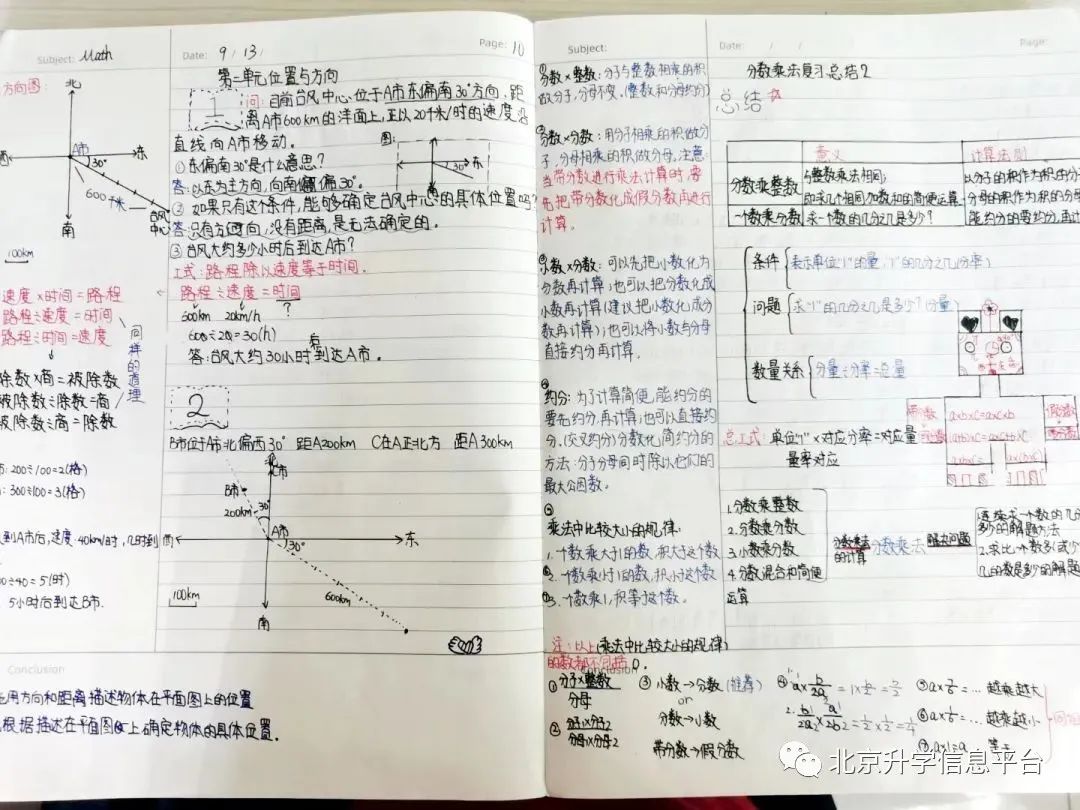 Subject: Math
Date: 9 / 13 /
Page: 10
方向图:
北
西
A市
东
30°
600
千米
台风
中心
南
100km
速度×时间=路程
路程÷速度=时间
路程÷时间=速度
同样的道理
除数×商=被除数
被除数÷除数=商
被除数÷商=除数
200÷100=2(格)
300÷100=3(格)
到A市后,速度40km/时,几时到
÷40=5(时)
5小时后到达B市.
Conclusion
用方向和距离描述物体在平面图上的位置
根据描述在平面图上确定物体的具体位置.
第二单元位置与方向
1
问:目前台风中心位于A市东偏南30°方向,距
离A市600km的洋面上,正以20千米/时的速度沿
直线向A市移动.
图:
30°
东
①东偏南30°是什么意思?
答:以东为主方向,向南偏30°.
②如果只有这个条件,能够确定台风中心的具体位置吗?
答:只有方向,没有距离,是无法确定的.
③台风大约多少小时后到达A市?
工式:路程除以速度等于时间.
路程÷速度=时间
600km 20km/h ?
600÷20=30(h)
答:台风大约30小时后到达A市.
2
B市位于A市北偏西30° 距A200km C在A正北方 距A300km
北
C市
B市
200km
30°
A市
西
东
30°
100km
600km
南
Subject:
Date: / /
Page:
①分数×整数:分子与整数相乘的积
做分子,分母不变.(整数和分母约分)
②分数×分数:用分子相乘的积做分
子,分母相乘的积做分母.注意:
当带分数进行乘法计算时,要
先把带分数化成假分数再进行
计算.
③小数×分数:可以先把小数化为
分数再计算;也可以把分数化成
小数再计算(建议把小数化成分
数再计算);也可以将小数与分母
直接约分再计算.
④约分:为了计算简便,能约分的
要先约分,再计算;也可以直接约
分,(交叉约分)分数化简约分的
方法:分子分母同时除以它们的
最大公因数.
⑤
乘法中比较大小的规律:
1.一个数乘大于1的数,积大于这个数
2.一个数乘小于1的数,积小于这个数
3.一个数乘1,积等于这个数.
注:以上(乘法中比较大小的规律)
的数都不包括0.
Conclusion
①分子×整数
分母
②分子1×分子2
分母1×分母2
③小数→分数(推荐)
or
分数→小数
带分数→假分数
越乘越大
越乘越小
⑦a×1=a
分数乘法复习总结2
总结
意义
计算法则
分数乘整数
与整数乘法相同:
即求几个相同加数和的简便运算
以分子的积作为积的分子
分母的积作为积的分母
能约分的要约分,再计
一个数乘分数
求一个数的几分之几是多少?
条件
表示单位"1"的量,"1"的几分之几(分率)
问题
求"1"的几分之几是多少?(分量)
数量关系
分量÷分率=总量
总工式:单位"1"×对应分率=对应量
量率对应
带分数
假分数
a×b×c=a×c×b
1.分数乘整数
2.分数乘分数
3.小数乘分数
4.分数混合和简便
运算
分数乘法
的计算
分数乘法
解决问题
1.连续求一个数的几分
多少的解题方法
2.求比一个数多(或少)
几的数是多少的解题
北京升学信息平台